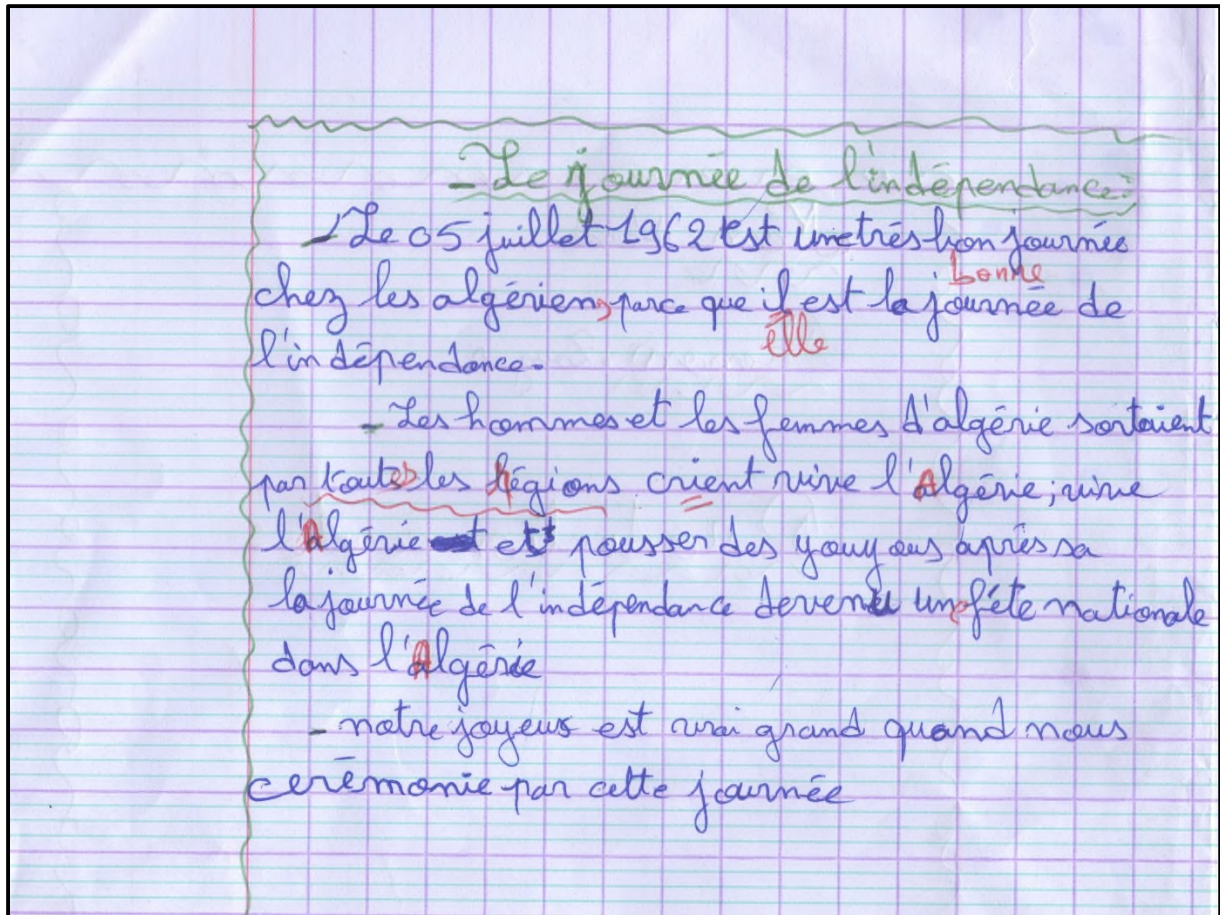 - Le journée de l'indépendance :
- Le 05 juillet 1962 est une trés bon journée
bonne
chez les algérien, parce que il est la journée de
elle
l'indépendance.
- Les hommes et les femmes d'algérie sortaient
par toutes les régions crient vive l'Algérie ; vive
l'Algérie et pousser des youyous aprés sa
la journée de l'indépendance devenu une féte nationale
dans l'Algérie
- notre joyeus est vrai grand quand nous
cerémonie par cette journée